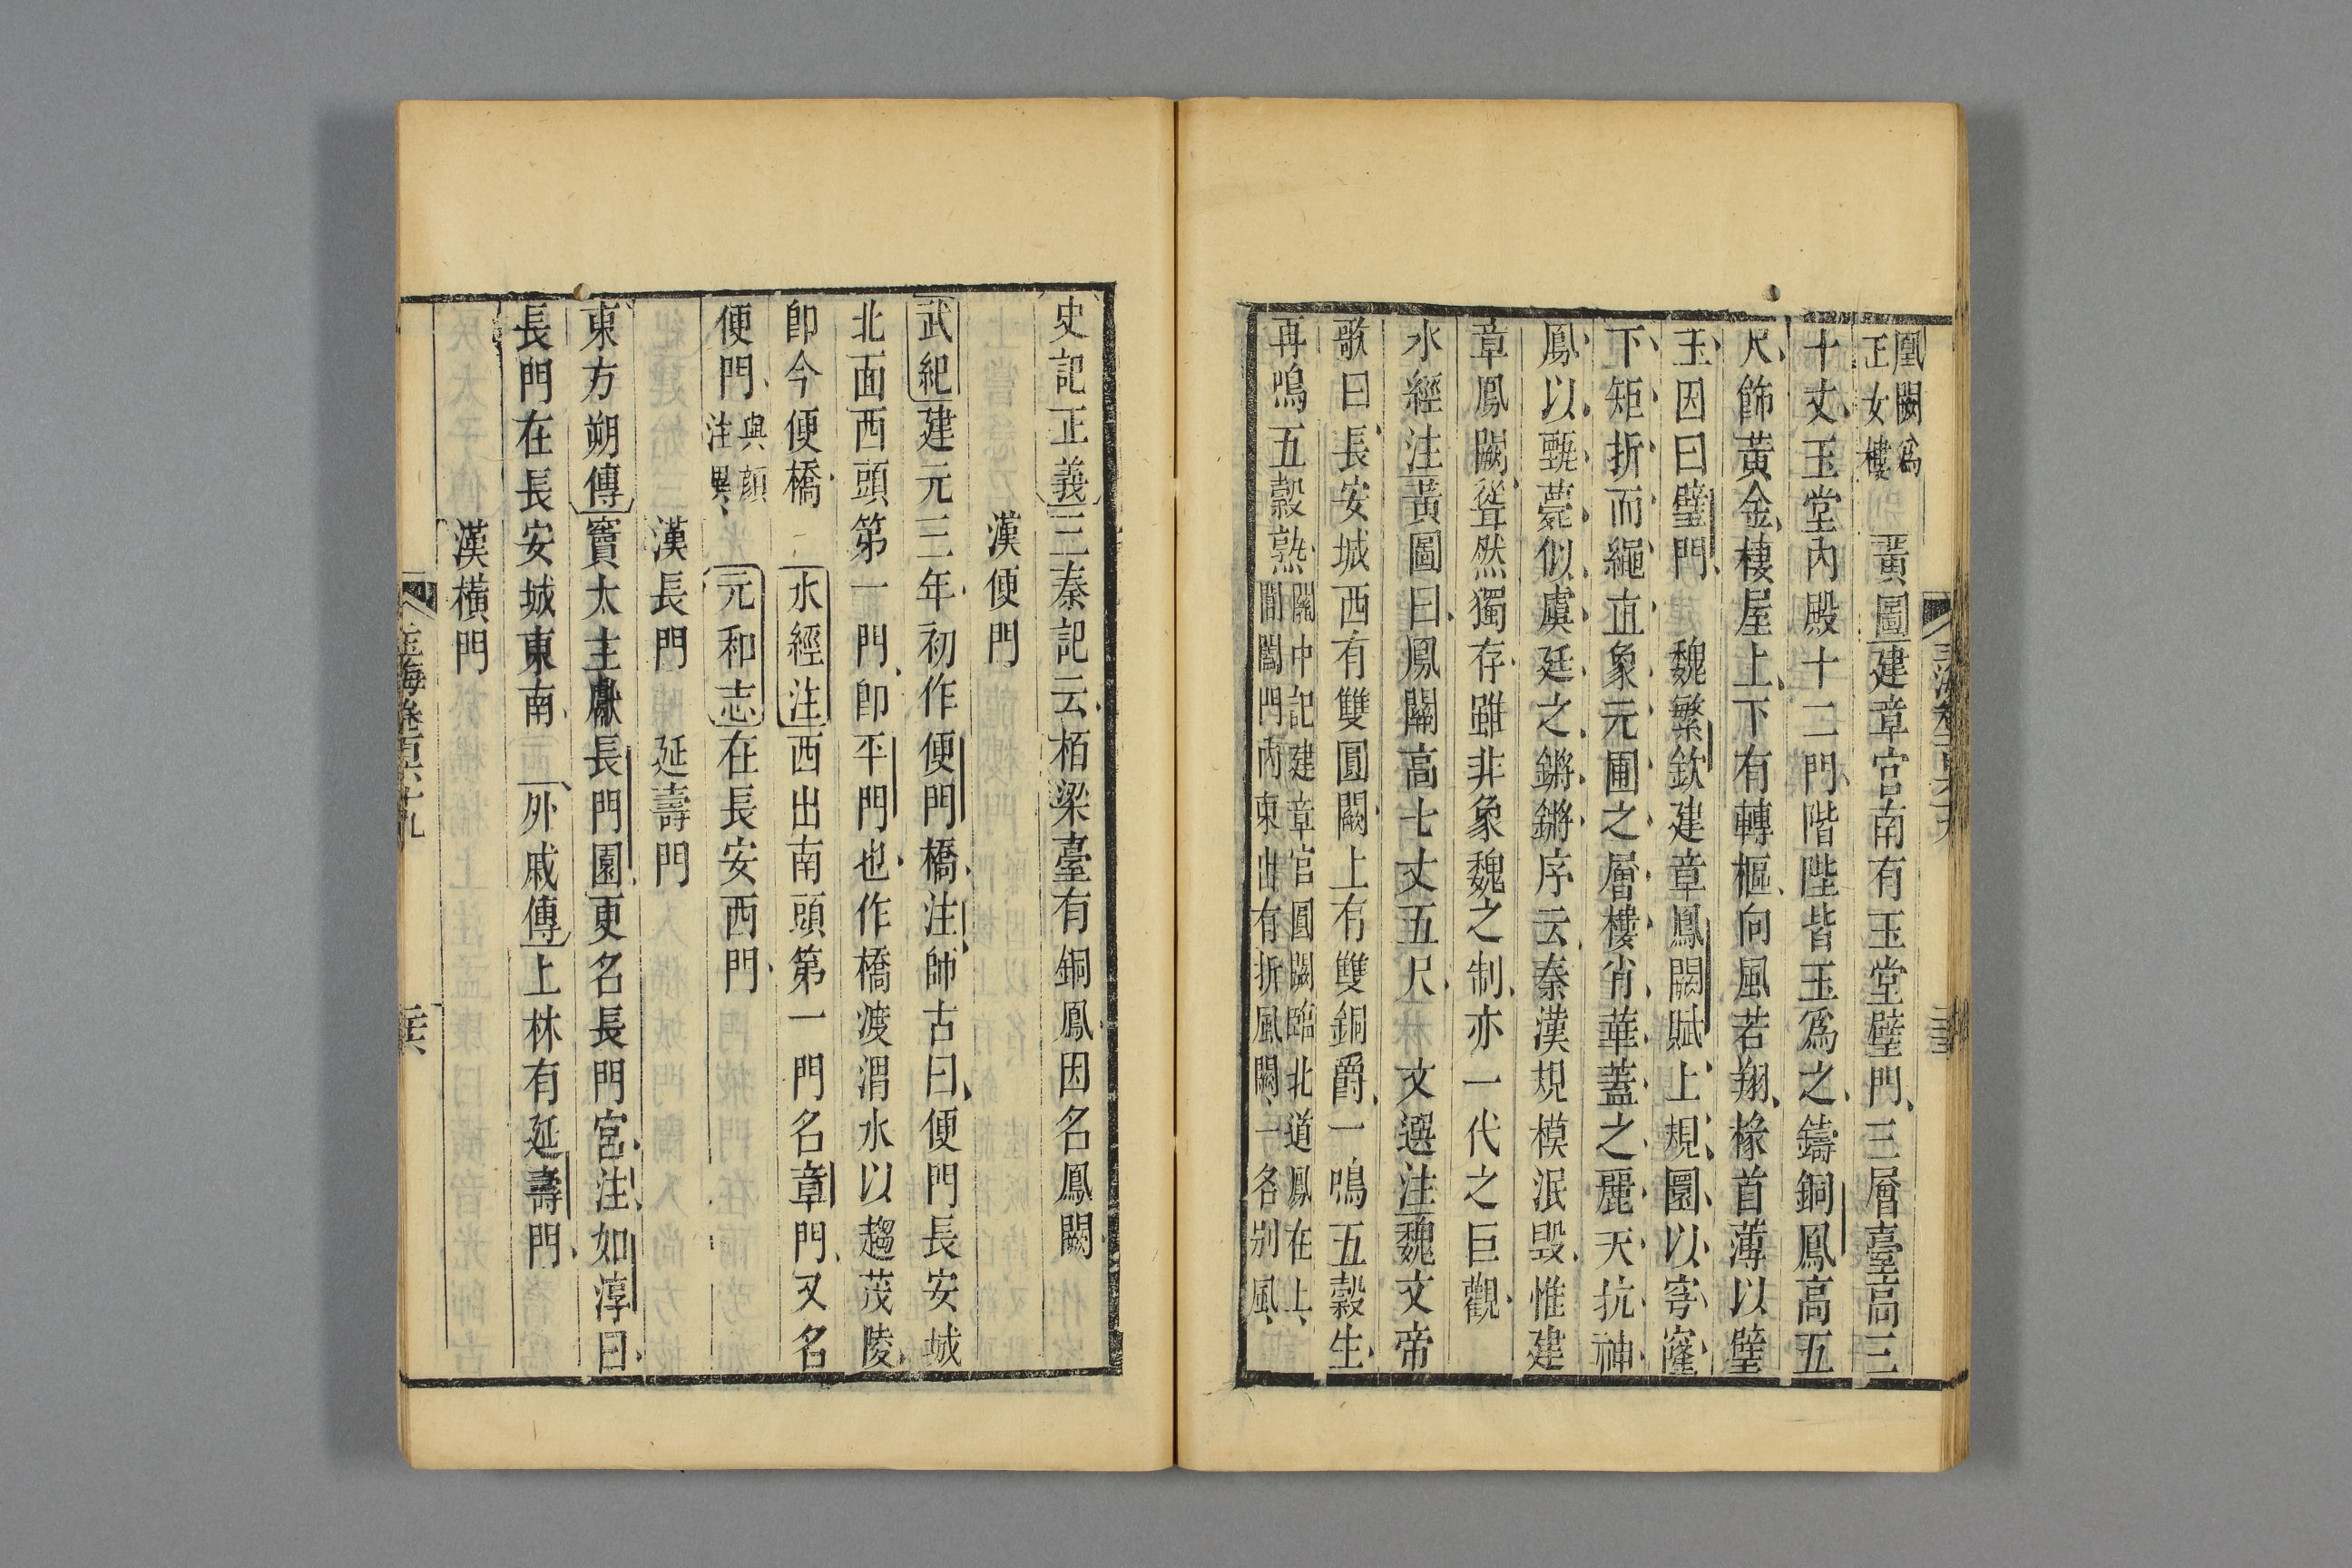 凰闕爲
正女樓
黃圖建章宮南有玉堂璧門三層臺高三
十丈玉堂內殿十二門階陛皆玉爲之鑄銅鳳高五
尺飾黃金棲屋上下有轉樞向風若翔椽首薄以璧
玉因曰璧門 魏繁欽建章鳳闕賦上規圜以穹窿
下矩折而繩直象元圃之層樓肖華蓋之麗天抗神
鳳以甄甍似虞廷之鏘鏘序云秦漢規模泯毀惟建
章鳳闕聳然獨存雖非象魏之制亦一代之巨觀
水經注黃圖曰鳳闕高七丈五尺 文選注魏文帝
歌曰長安城西有雙圓闕上有雙銅爵一鳴五穀生
再鳴五穀熟
關中記建章宮圓闕臨北道鳳在上
閶闔門內東出有折風闕一名別風
史記正義三秦記云栢梁臺有銅鳳因名鳳闕
漢便門
武紀建元三年初作便門橋注師古曰便門長安城
北面西頭第一門即平門也作橋渡渭水以趨茂陵
即今便橋 水經注西出南頭第一門名章門又名
便門
與顔
注異
元和志在長安西門
漢長門 延壽門
東方朔傳竇太主獻長門園更名長門宮注如淳曰
長門在長安城東南 外戚傳上林有延壽門
漢橫門
玉海卷一百六十九